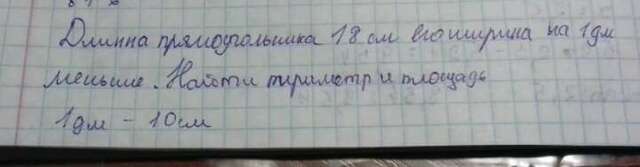 Длинна прямоугольника 18 см его ширина на 1 дм
меньше. Найти периметр и площадь
1 дм - 10 см